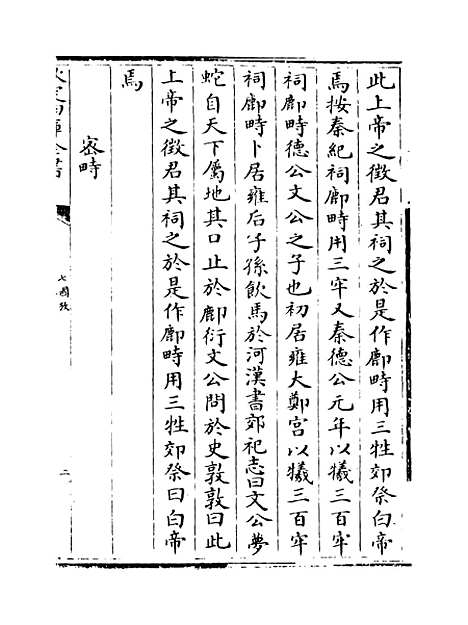 此上帝之徴君其祠之於是作鄜畤用三牲郊祭白帝
焉按秦紀祠鄜畤用三牢又秦德公元年以犧三百牢
祠鄜畤德公文公之子也初居雍大鄭宫以犧三百牢
祠鄜畤卜居雍后子孫飲馬於河漢書郊祀志曰文公夢
蛇自天下屬地其口止於鄜衍文公問於史敦敦曰此
上帝之徴君其祠之於是作鄜畤用三牲郊祭曰白帝
焉
密畤
七國攷
二